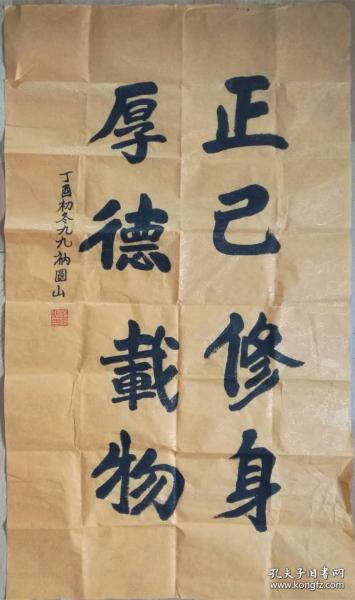 正己修身
厚德載物
丁酉初冬九九衲圓山
孔夫子旧书网
www.kongfz.com